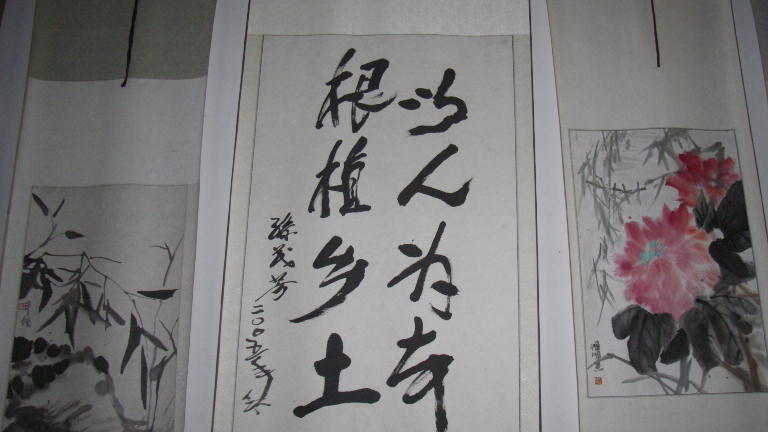 以人为本
根植乡土
孙茂芳
二〇〇五年冬